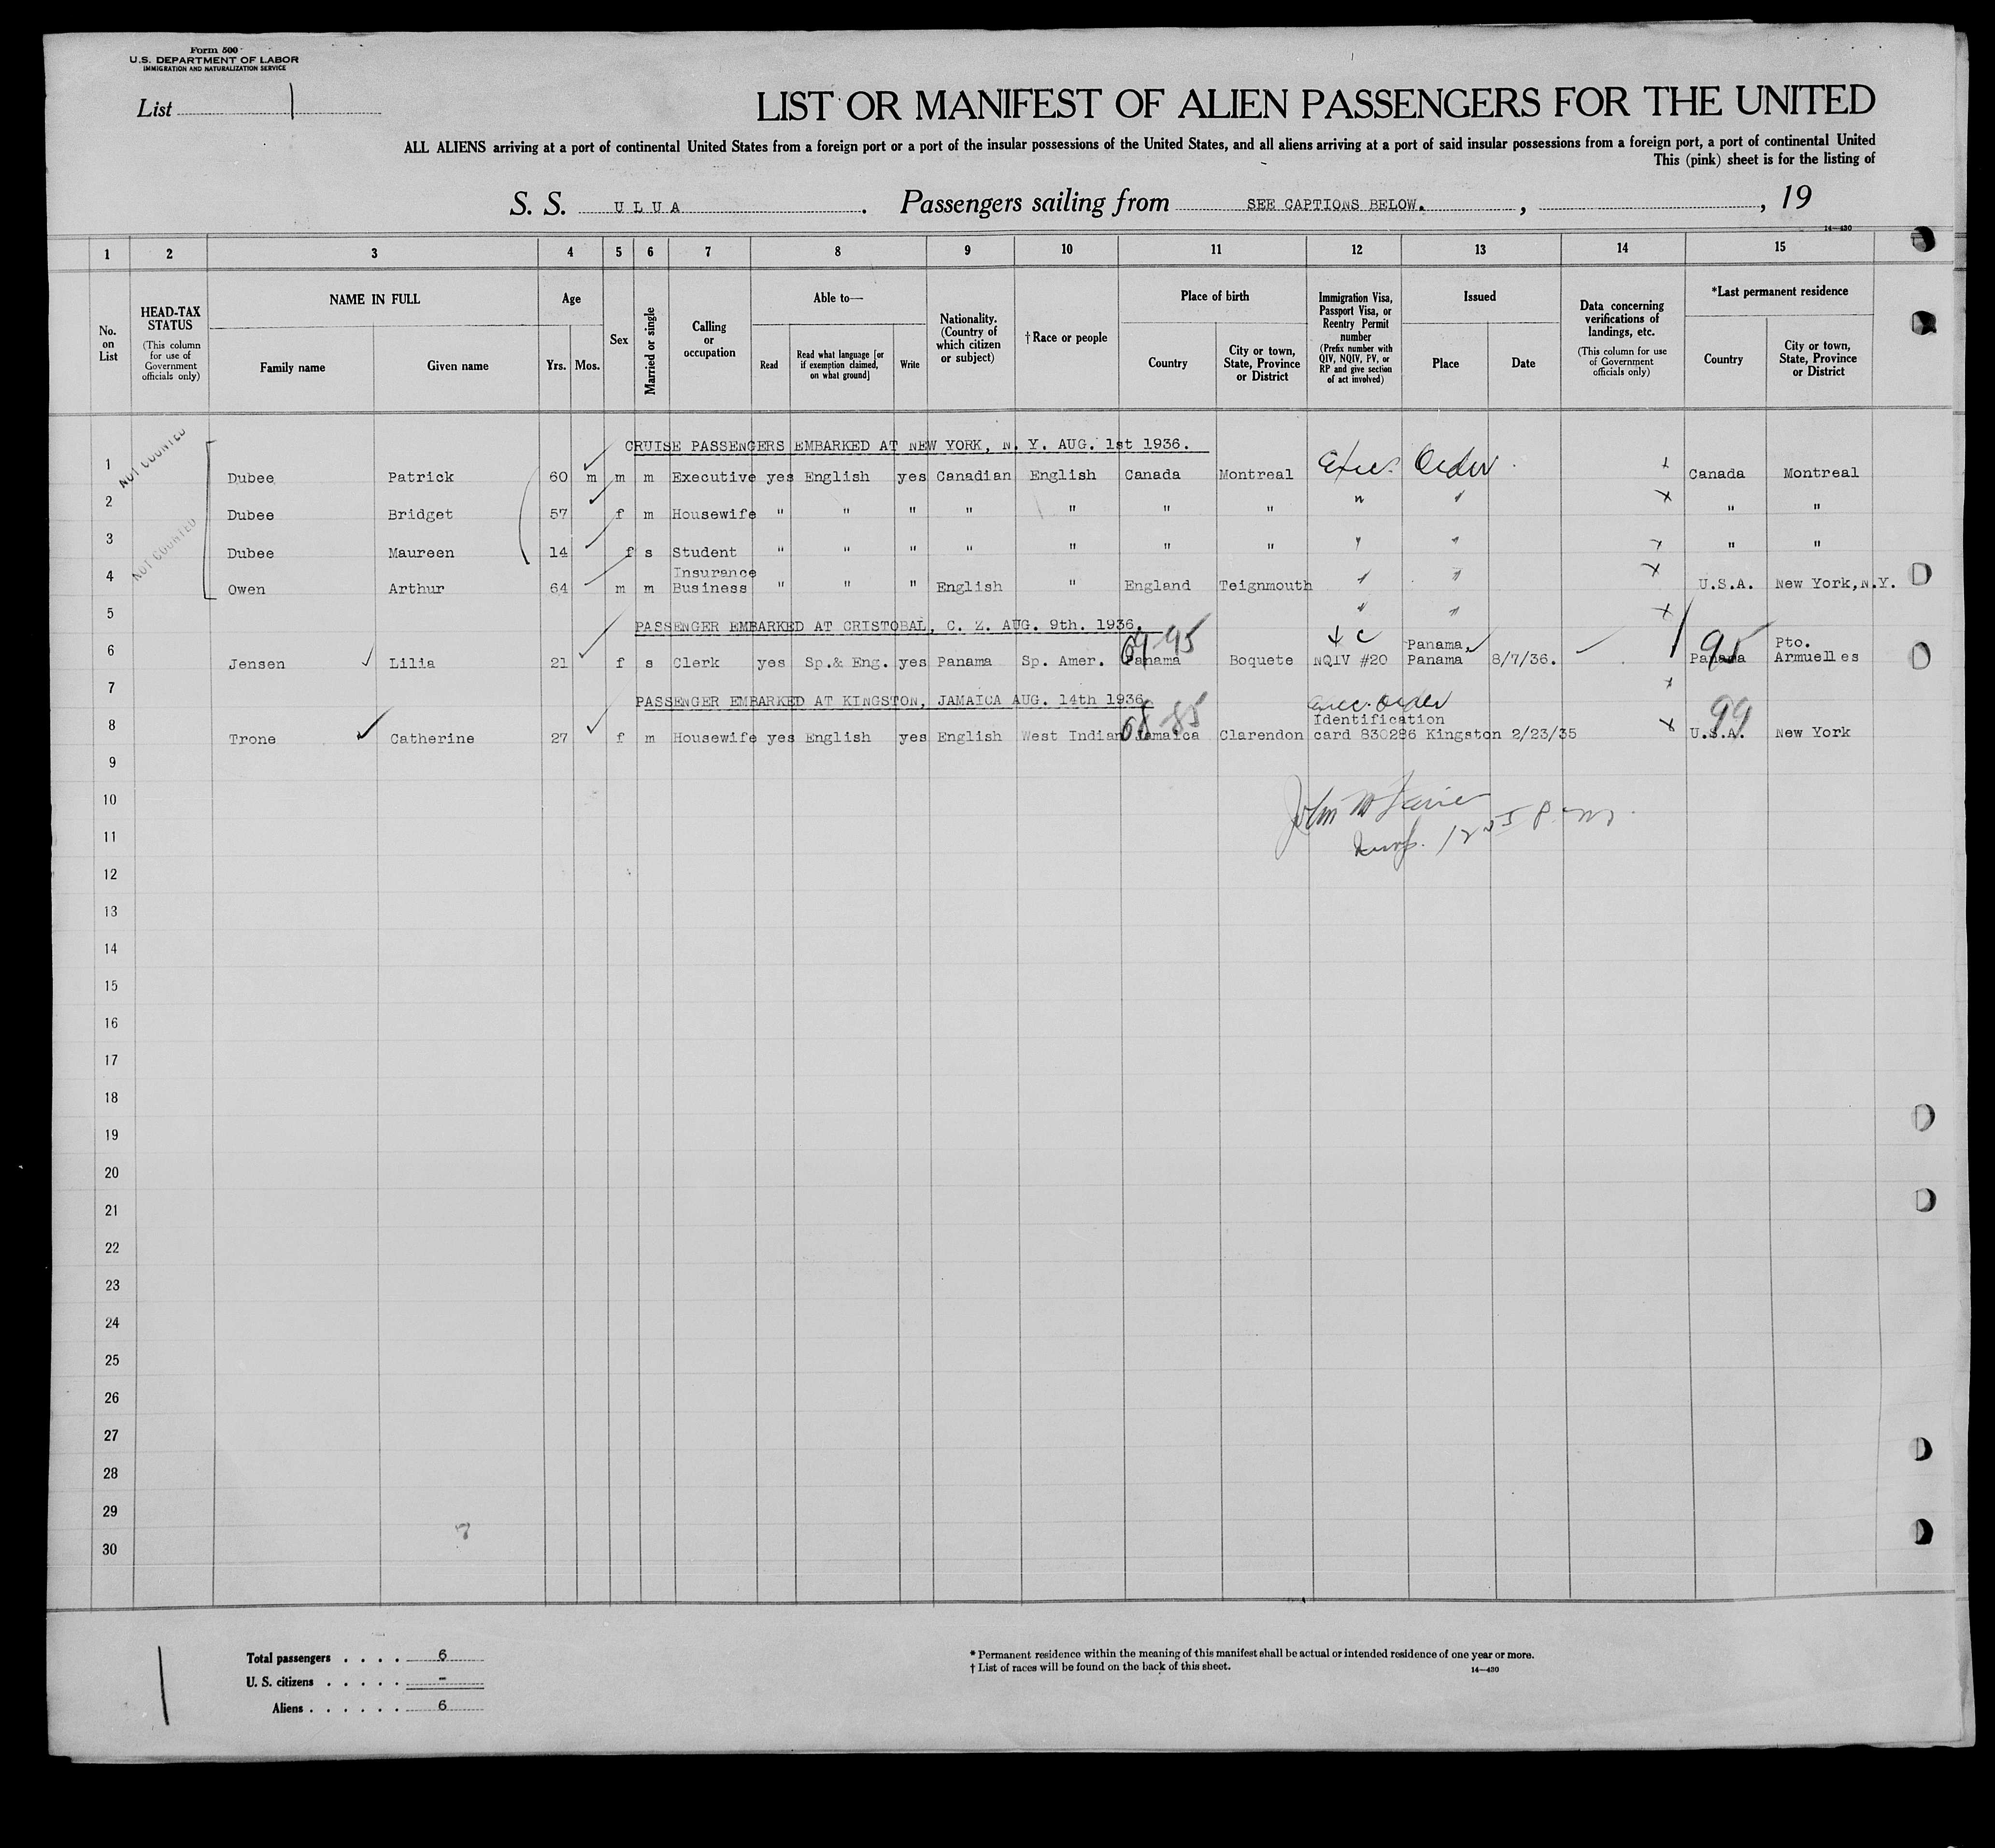 Form 500
U.S. DEPARTMENT OF LABOR
IMMIGRATION AND NATURALIZATION SERVICE
List 1
LIST OR MANIFEST OF ALIEN PASSENGERS FOR THE UNITED
ALL ALIENS arriving at a port of continental United States from a foreign port or a port of the insular possessions of the United States, and all aliens arriving at a port of said insular possessions from a foreign port, a port of continental United
This (pink) sheet is for the listing of
S. S. ULUA. Passengers sailing from SEE CAPTIONS BELOW. , , 19
14—430
1 2 3 4 5 6 7 8 9 10 11 12 13 14 15
No. on List
HEAD-TAX STATUS
(This column for use of Government officials only)
NAME IN FULL
Family name Given name
Age
Yrs. Mos.
Sex
Married or single
Calling or occupation
Able to—
Read Read what language [or if exemption claimed, on what ground] Write
Nationality. (Country of which citizen or subject)
† Race or people
Place of birth
Country City or town, State, Province or District
Immigration Visa, Passport Visa, or Reentry Permit number
(Prefix number with QIV, NQIV, PV, or RP and give section of act involved)
Issued
Place Date
Data concerning verifications of landings, etc.
(This column for use of Government officials only)
*Last permanent residence
Country City or town, State, Province or District
NOT COUNTED
NOT COUNTED
CRUISE PASSENGERS EMBARKED AT NEW YORK, N. Y. AUG. 1st 1936.
1 Dubee Patrick 60 m m m Executive yes English yes Canadian English Canada Montreal Exec. Order x Canada Montreal
2 Dubee Bridget 57 f m Housewife " " " " " " " " " x " "
3 Dubee Maureen 14 f s Student " " " " " " " " " x " "
4 Owen Arthur 64 m m Insurance Business " " " English " England Teignmouth " " x U.S.A. New York, N.Y.
5 " " x
PASSENGER EMBARKED AT CRISTOBAL, C. Z. AUG. 9th. 1936.
6 Jensen Lilia 21 f s Clerk yes Sp.& Eng. yes Panama Sp. Amer. 69 95 Panama Boquete NQIV #20 Panama, Panama 8/7/36. 95 Panama Pto. Armuelles
7 x
PASSENGER EMBARKED AT KINGSTON, JAMAICA AUG. 14th 1936.
Exec. Order
8 Trone Catherine 27 f m Housewife yes English yes English West Indian 68 85 Jamaica Clarendon Identification card 830286 Kingston 2/23/35 x 99 U.S.A. New York
9
10
11
12
13
14
15
16
17
18
19
20
21
22
23
24
25
26
27
28
29
30
7
Total passengers . . . . 6
U. S. citizens . . . . . -
Aliens . . . . . . 6
* Permanent residence within the meaning of this manifest shall be actual or intended residence of one year or more.
† List of races will be found on the back of this sheet.
14—430